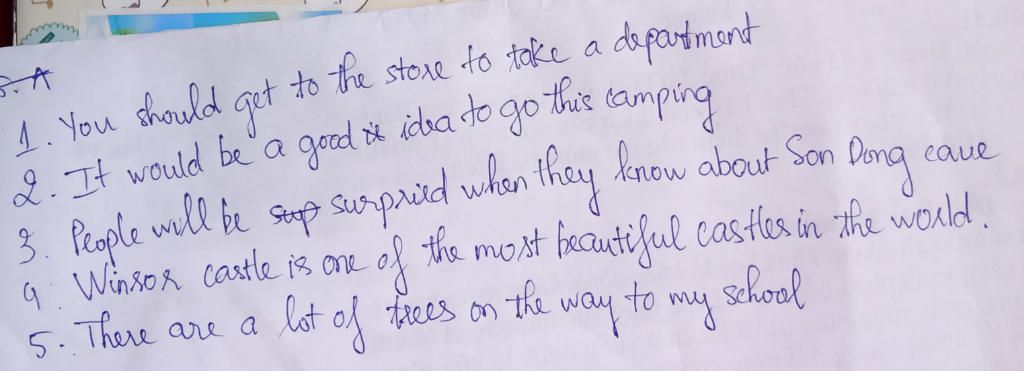 5. A
1. You should get to the store to take a department
2. It would be a good is idea to go this camping
3. People will be sup surpried when they know about Son Dong cave
4. Winsor castle is one of the most beautiful castles in the world.
5. There are a lot of trees on the way to my school